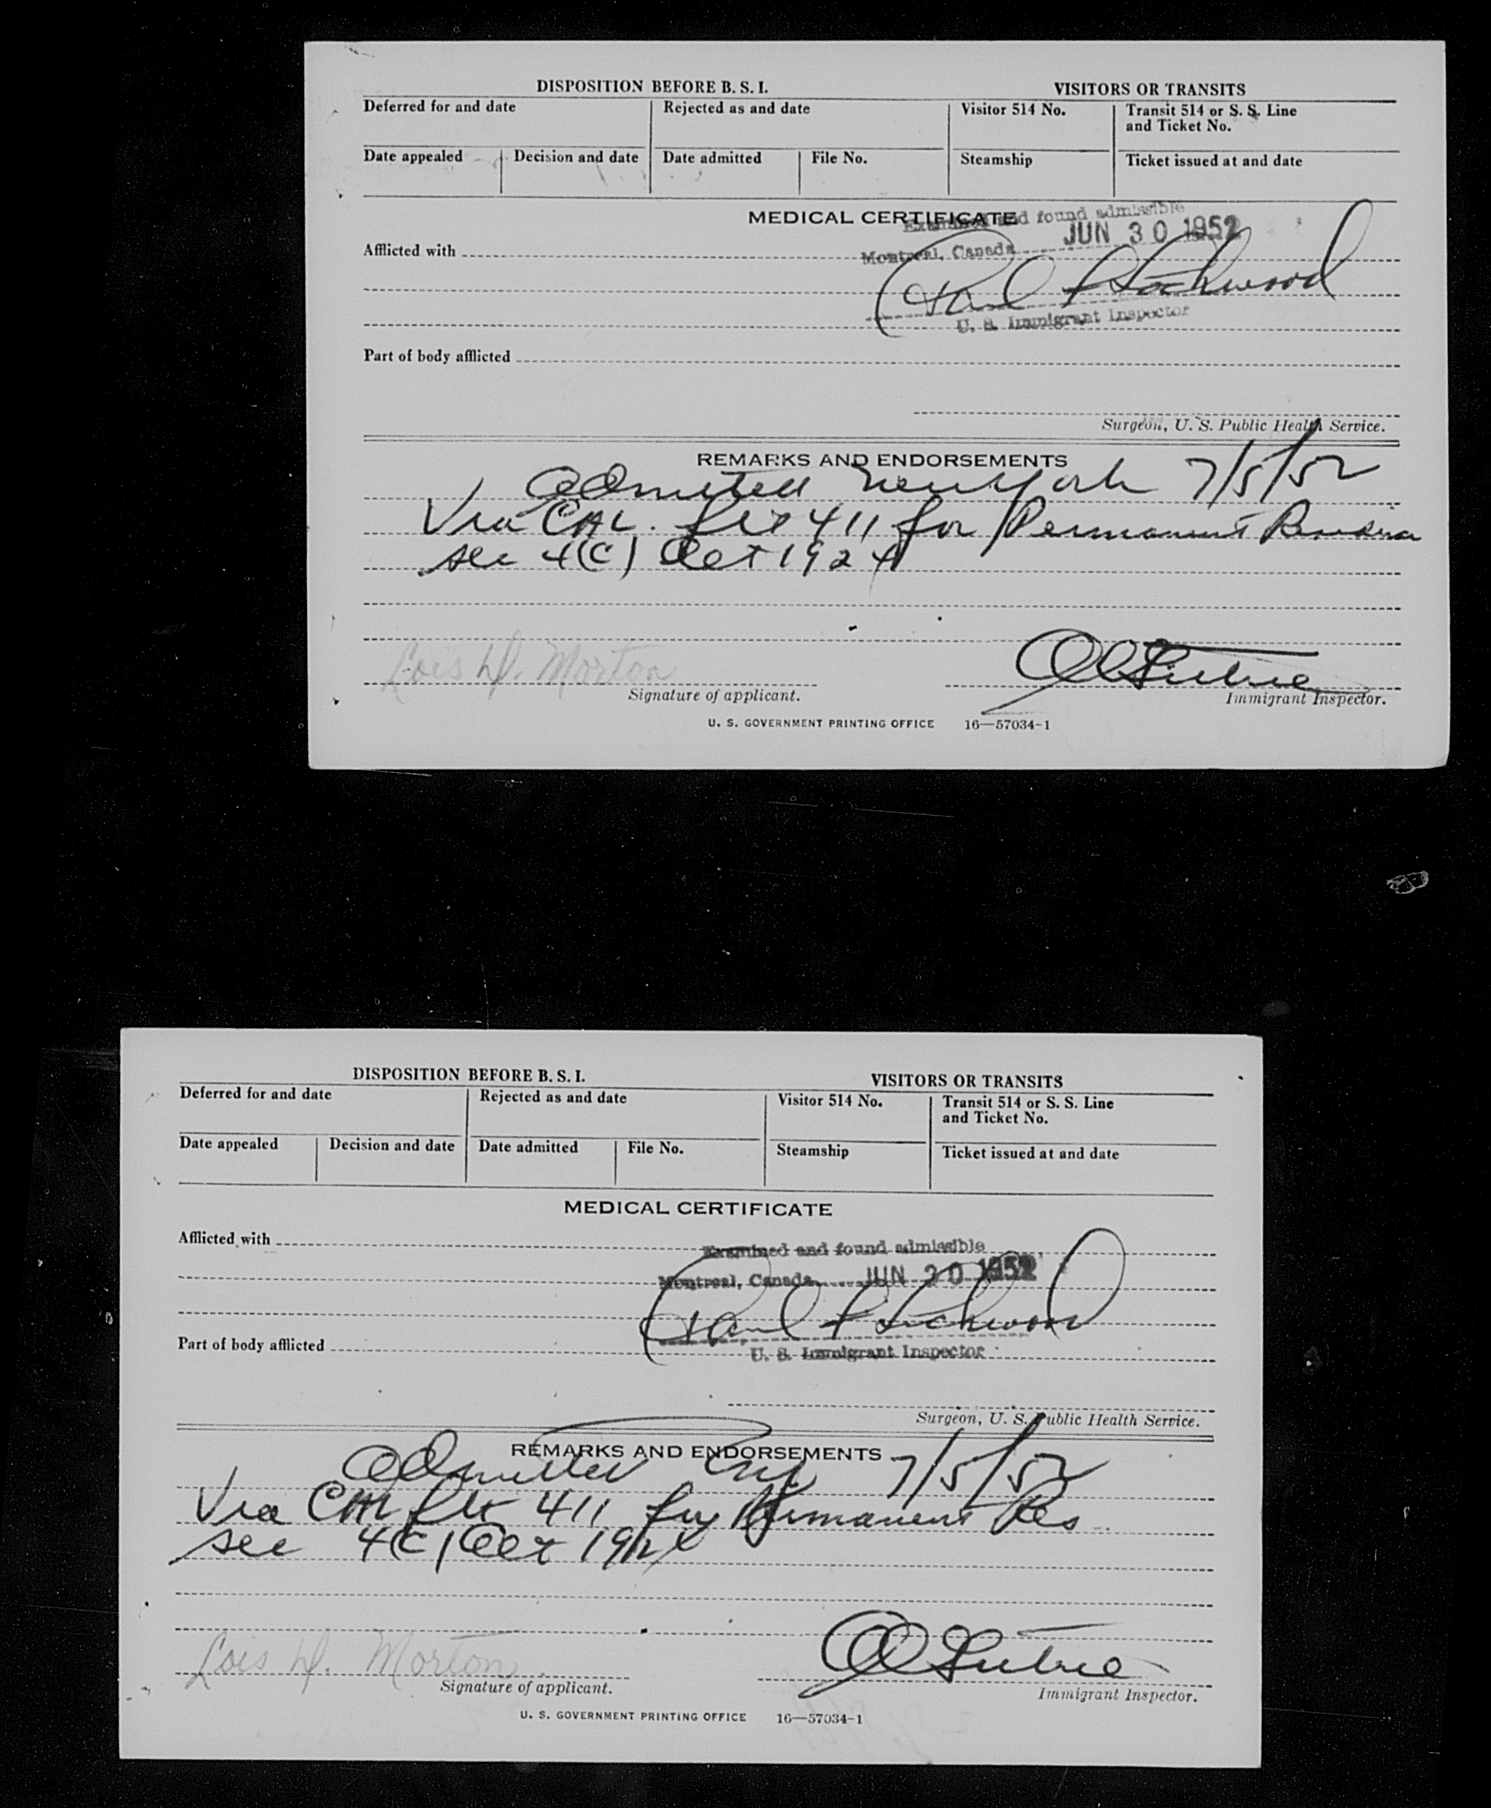 DISPOSITION BEFORE B. S. I.
VISITORS OR TRANSITS
Deferred for and date
Rejected as and date
Visitor 514 No.
Transit 514 or S. S. Line
and Ticket No.
Date appealed
Decision and date
Date admitted
File No.
Steamship
Ticket issued at and date
MEDICAL CERTIFICATE
Examined and found admissible
Afflicted with
Montreal, Canada JUN 30 1952
Paul Lockwood
U. S. Immigrant Inspector
Part of body afflicted
Surgeon, U. S. Public Health Service.
REMARKS AND ENDORSEMENTS
Admitted New York 7/5/52
Via CAL flt 411 for Permanent
sec 4(C) Act 1924
Lois D. Morton
Signature of applicant.
Immigrant Inspector.
U. S. GOVERNMENT PRINTING OFFICE 16—57034-1
DISPOSITION BEFORE B. S. I.
VISITORS OR TRANSITS
Deferred for and date
Rejected as and date
Visitor 514 No.
Transit 514 or S. S. Line
and Ticket No.
Date appealed
Decision and date
Date admitted
File No.
Steamship
Ticket issued at and date
MEDICAL CERTIFICATE
Afflicted with
Examined and found admissible
Montreal, Canada JUN 30 1952
Paul Lockwood
Part of body afflicted
U. S. Immigrant Inspector
Surgeon, U. S. Public Health Service.
REMARKS AND ENDORSEMENTS
Admitted 7/5/52
Via CAL flt 411 for Permanent Res
sec 4(C) Act 1924
Lois D. Morton
Signature of applicant.
Immigrant Inspector.
U. S. GOVERNMENT PRINTING OFFICE 16—57034-1